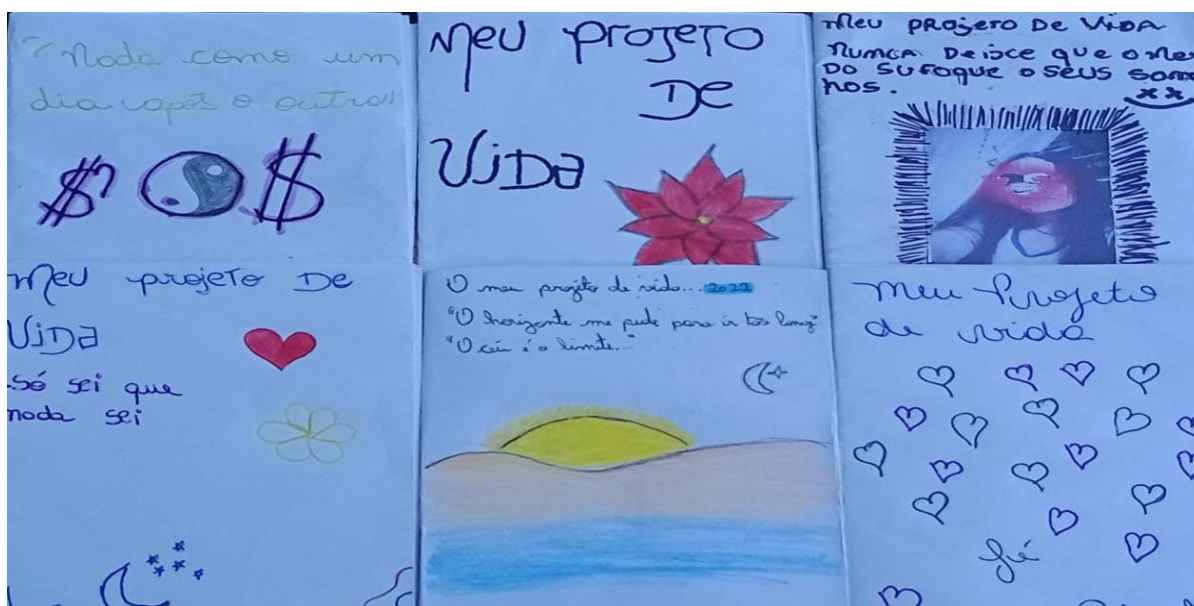 "Nada como um
dia após o outro"
$ $
Meu projeto
De
Vida
Meu projeto De Vida
Nunca Deisce que o Me
Do sufoque o seus son
hos.
Meu projeto De
Vida
Só sei que
nada sei
O meu projeto de vida... 2022
"O horizonte me pede para ir tão longe"
"O céu é o limite..."
Meu Projeto
de vida
fé